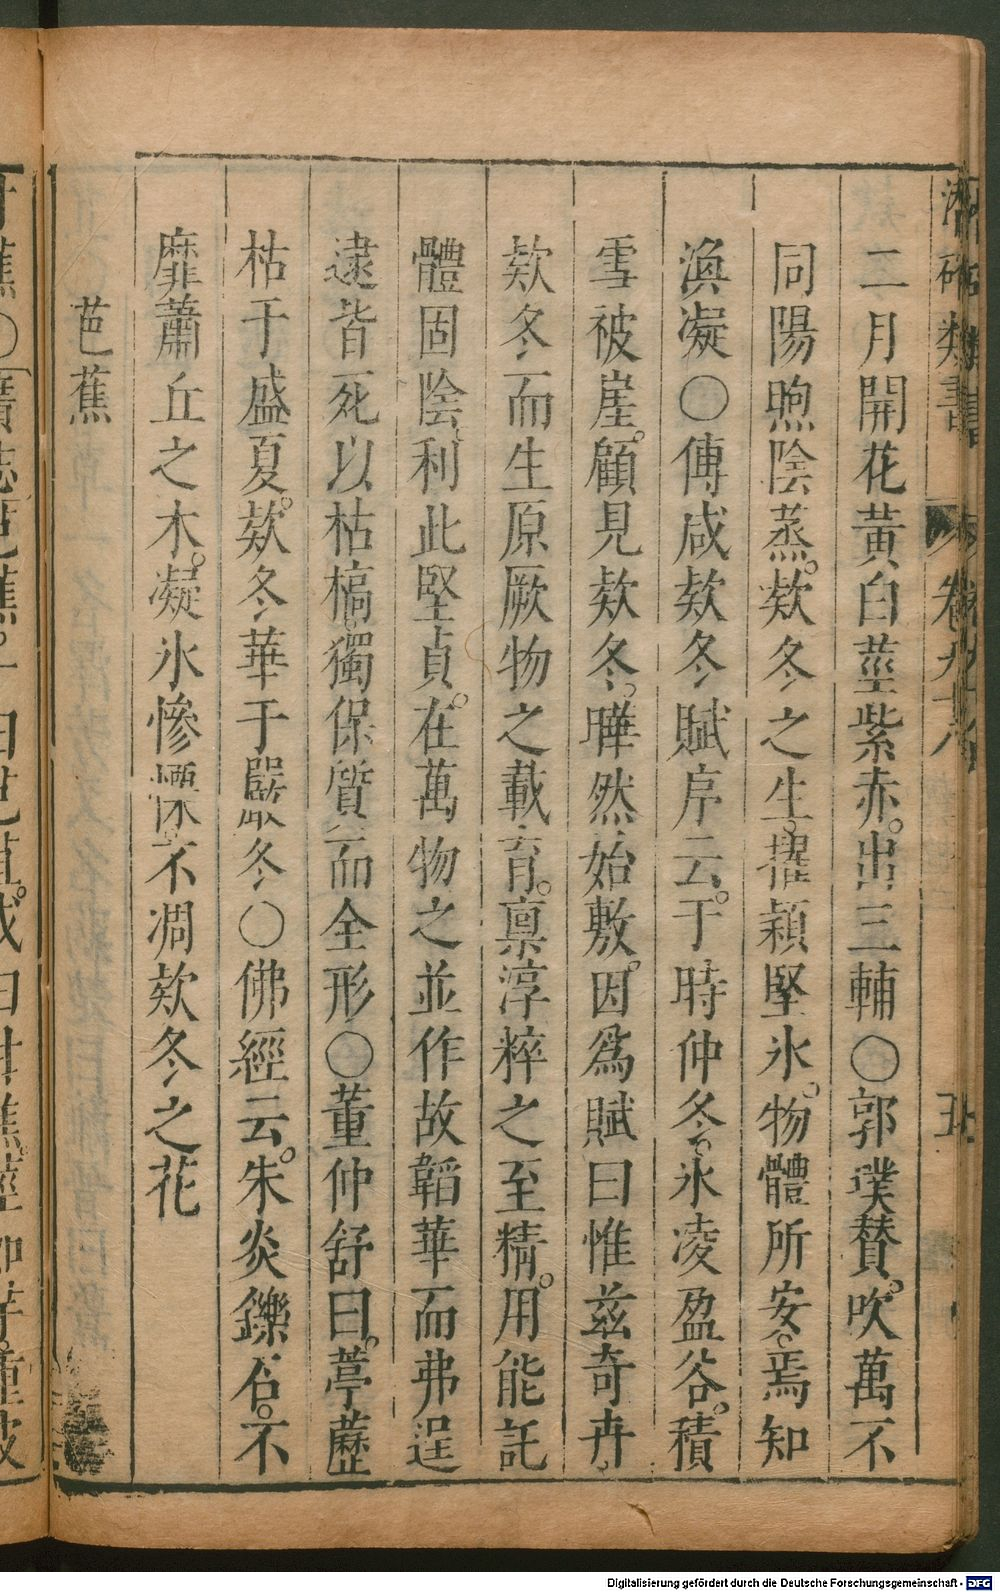 潛確類書 卷九十八
二月開花黃白莖紫赤。出三輔○郭璞贊。吹萬不
同陽煦陰蒸。欵冬之生。擢穎堅氷。物體所安。焉知
渙凝○傅咸欵冬賦序云。于時仲冬。氷凌盈谷。積
雪被崖。顧見欵冬。曄然始敷。因爲賦曰惟兹奇卉
欵冬而生原厥物之載育。禀淳粹之至精。用能託
體固陰。利此堅貞。在萬物之並作故韜華而弗逞
逮皆死以枯槁。獨保質而全形○董仲舒曰。葶藶
枯于盛夏。欵冬華于嚴冬○佛經云。朱炎鑠石。不
靡蕭丘之木。凝氷慘慄不凋欵冬之花
芭蕉
Digitalisierung gefördert durch die Deutsche Forschungsgemeinschaft - DFG